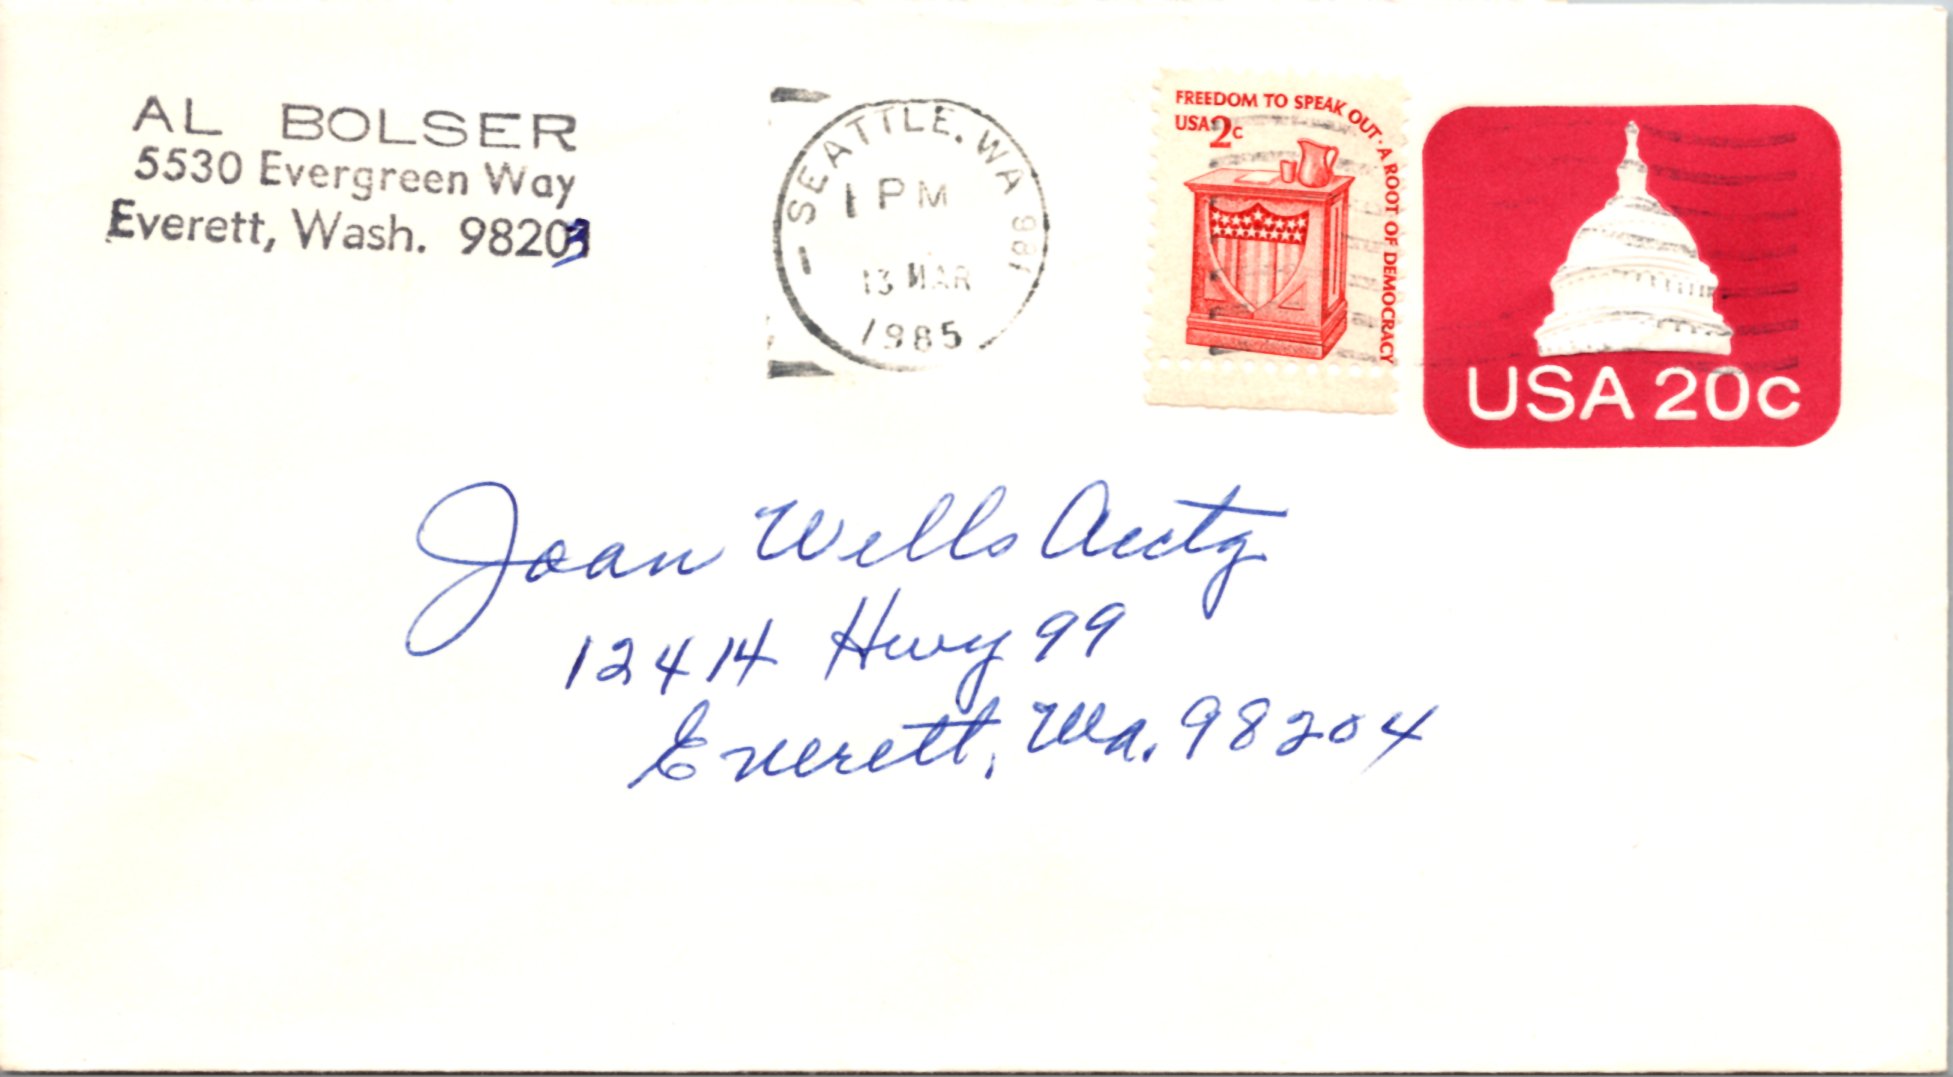 AL BOLSER
5530 Evergreen Way
Everett, Wash. 98203
SEATTLE, WA 981
1 PM
13 MAR
1985
FREEDOM TO SPEAK OUT · A ROOT OF DEMOCRACY
USA 2c
USA 20c
Joan Wells Acctg
12414 Hwy 99
Everett, Wa. 98204